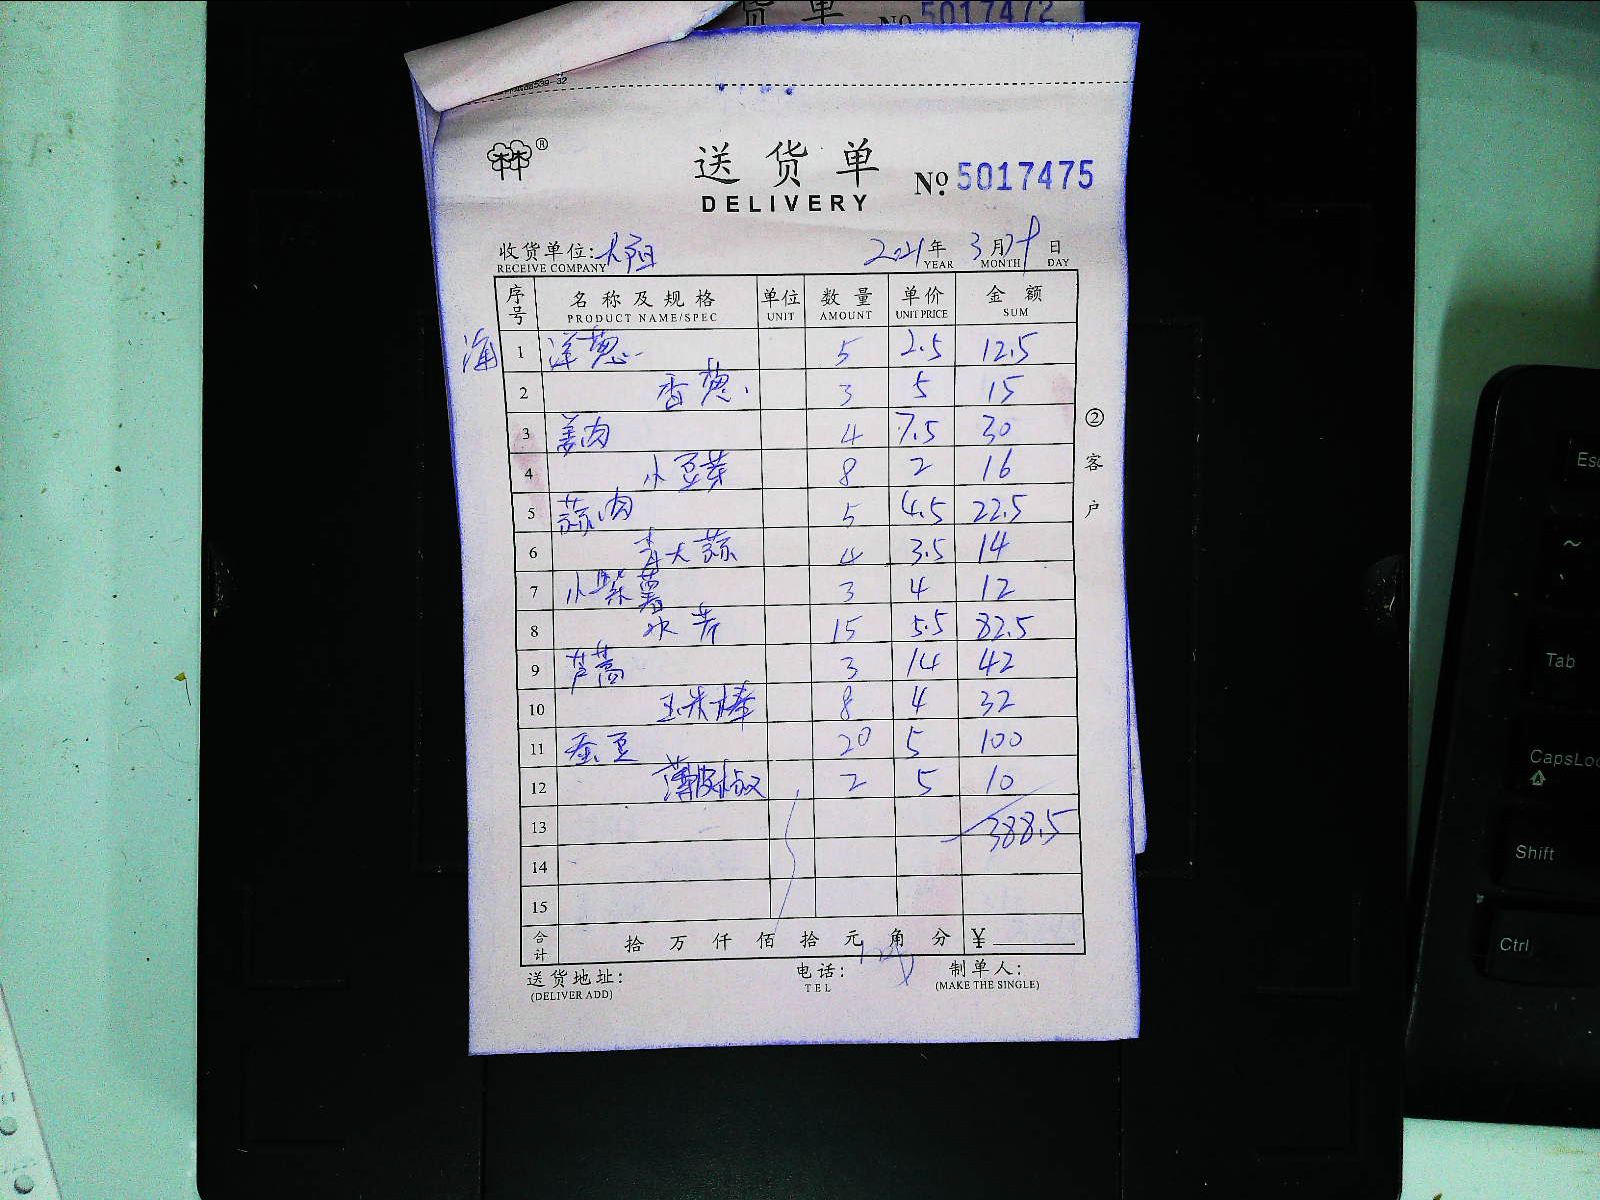 货单 No 5017472
送货单
DELIVERY
® No. 5017475
收货单位: 大阳 2021年 3月 日
RECEIVE COMPANY YEAR MONTH DAY
序号 名称及规格 单位 数量 单价 金额
PRODUCT NAME/SPEC UNIT AMOUNT UNIT PRICE SUM
1 洋葱 5 2.5 12.5
2 香葱 3 5 15
3 姜肉 4 7.5 30
4 小豆芽 8 2 16
5 蒜肉 5 4.5 22.5
6 青大蒜 4 3.5 14
7 小紫薯 3 4 12
8 水芹 15 5.5 82.5
9 芦蒿 3 14 42
10 玉米棒 8 4 32
11 蚕豆 20 5 100
12 薄皮椒 2 5 10
13 388.5
14
15
合计 拾万仟佰拾元角分 ¥
送货地址: 电话: 制单人:
(DELIVER ADD) TEL (MAKE THE SINGLE)
②客户
Esc
~
Tab
CapsLoc
Shift
Ctrl